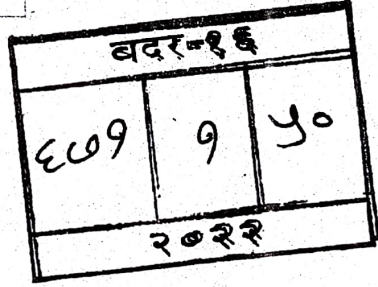 बदर-१६
६७१ १ ५०
२०२२